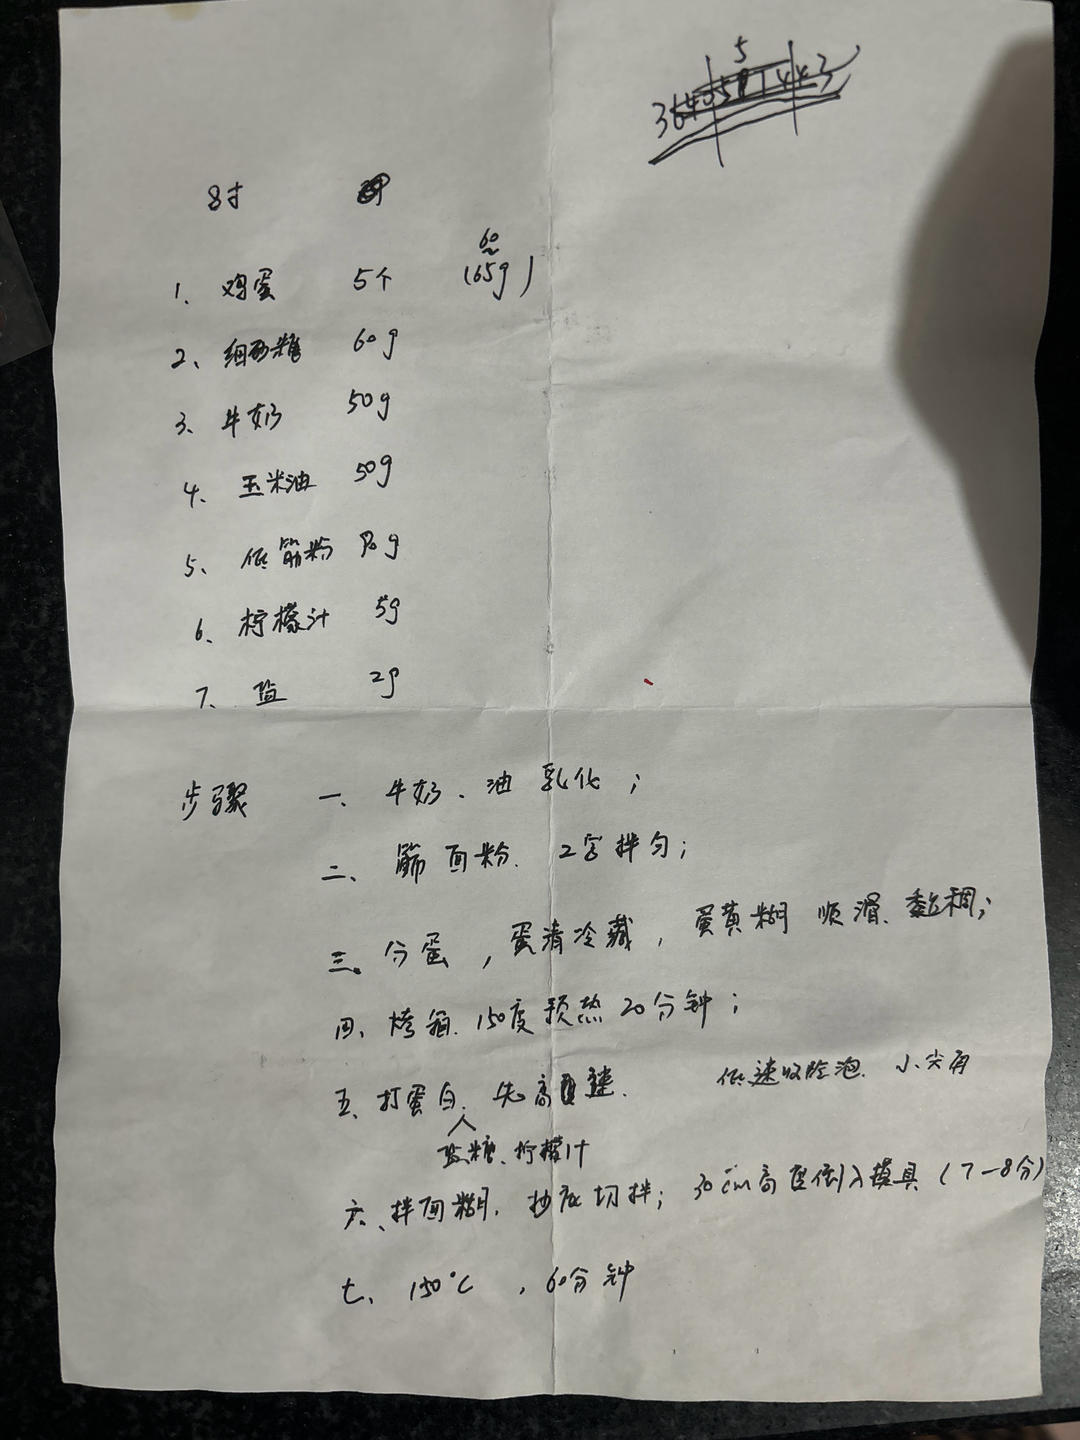 8寸
60
1、鸡蛋 5个 (65g)
2、细砂糖 60g
3、牛奶 50g
4、玉米油 50g
5、低筋粉 g
6、柠檬汁 5g
7、盐 2g
步骤 一、牛奶、油 乳化；
二、筛面粉、Z字拌匀；
三、分蛋，蛋清冷藏，蛋黄糊 顺滑、黏稠；
四、烤箱、150度预热20分钟；
五、打蛋白、先高速、 低速收 泡、小尖角
盐糖、柠檬汁
六、拌面糊、抄底切拌；30cm高度倒入模具(7-8分)
七、150℃，60分钟